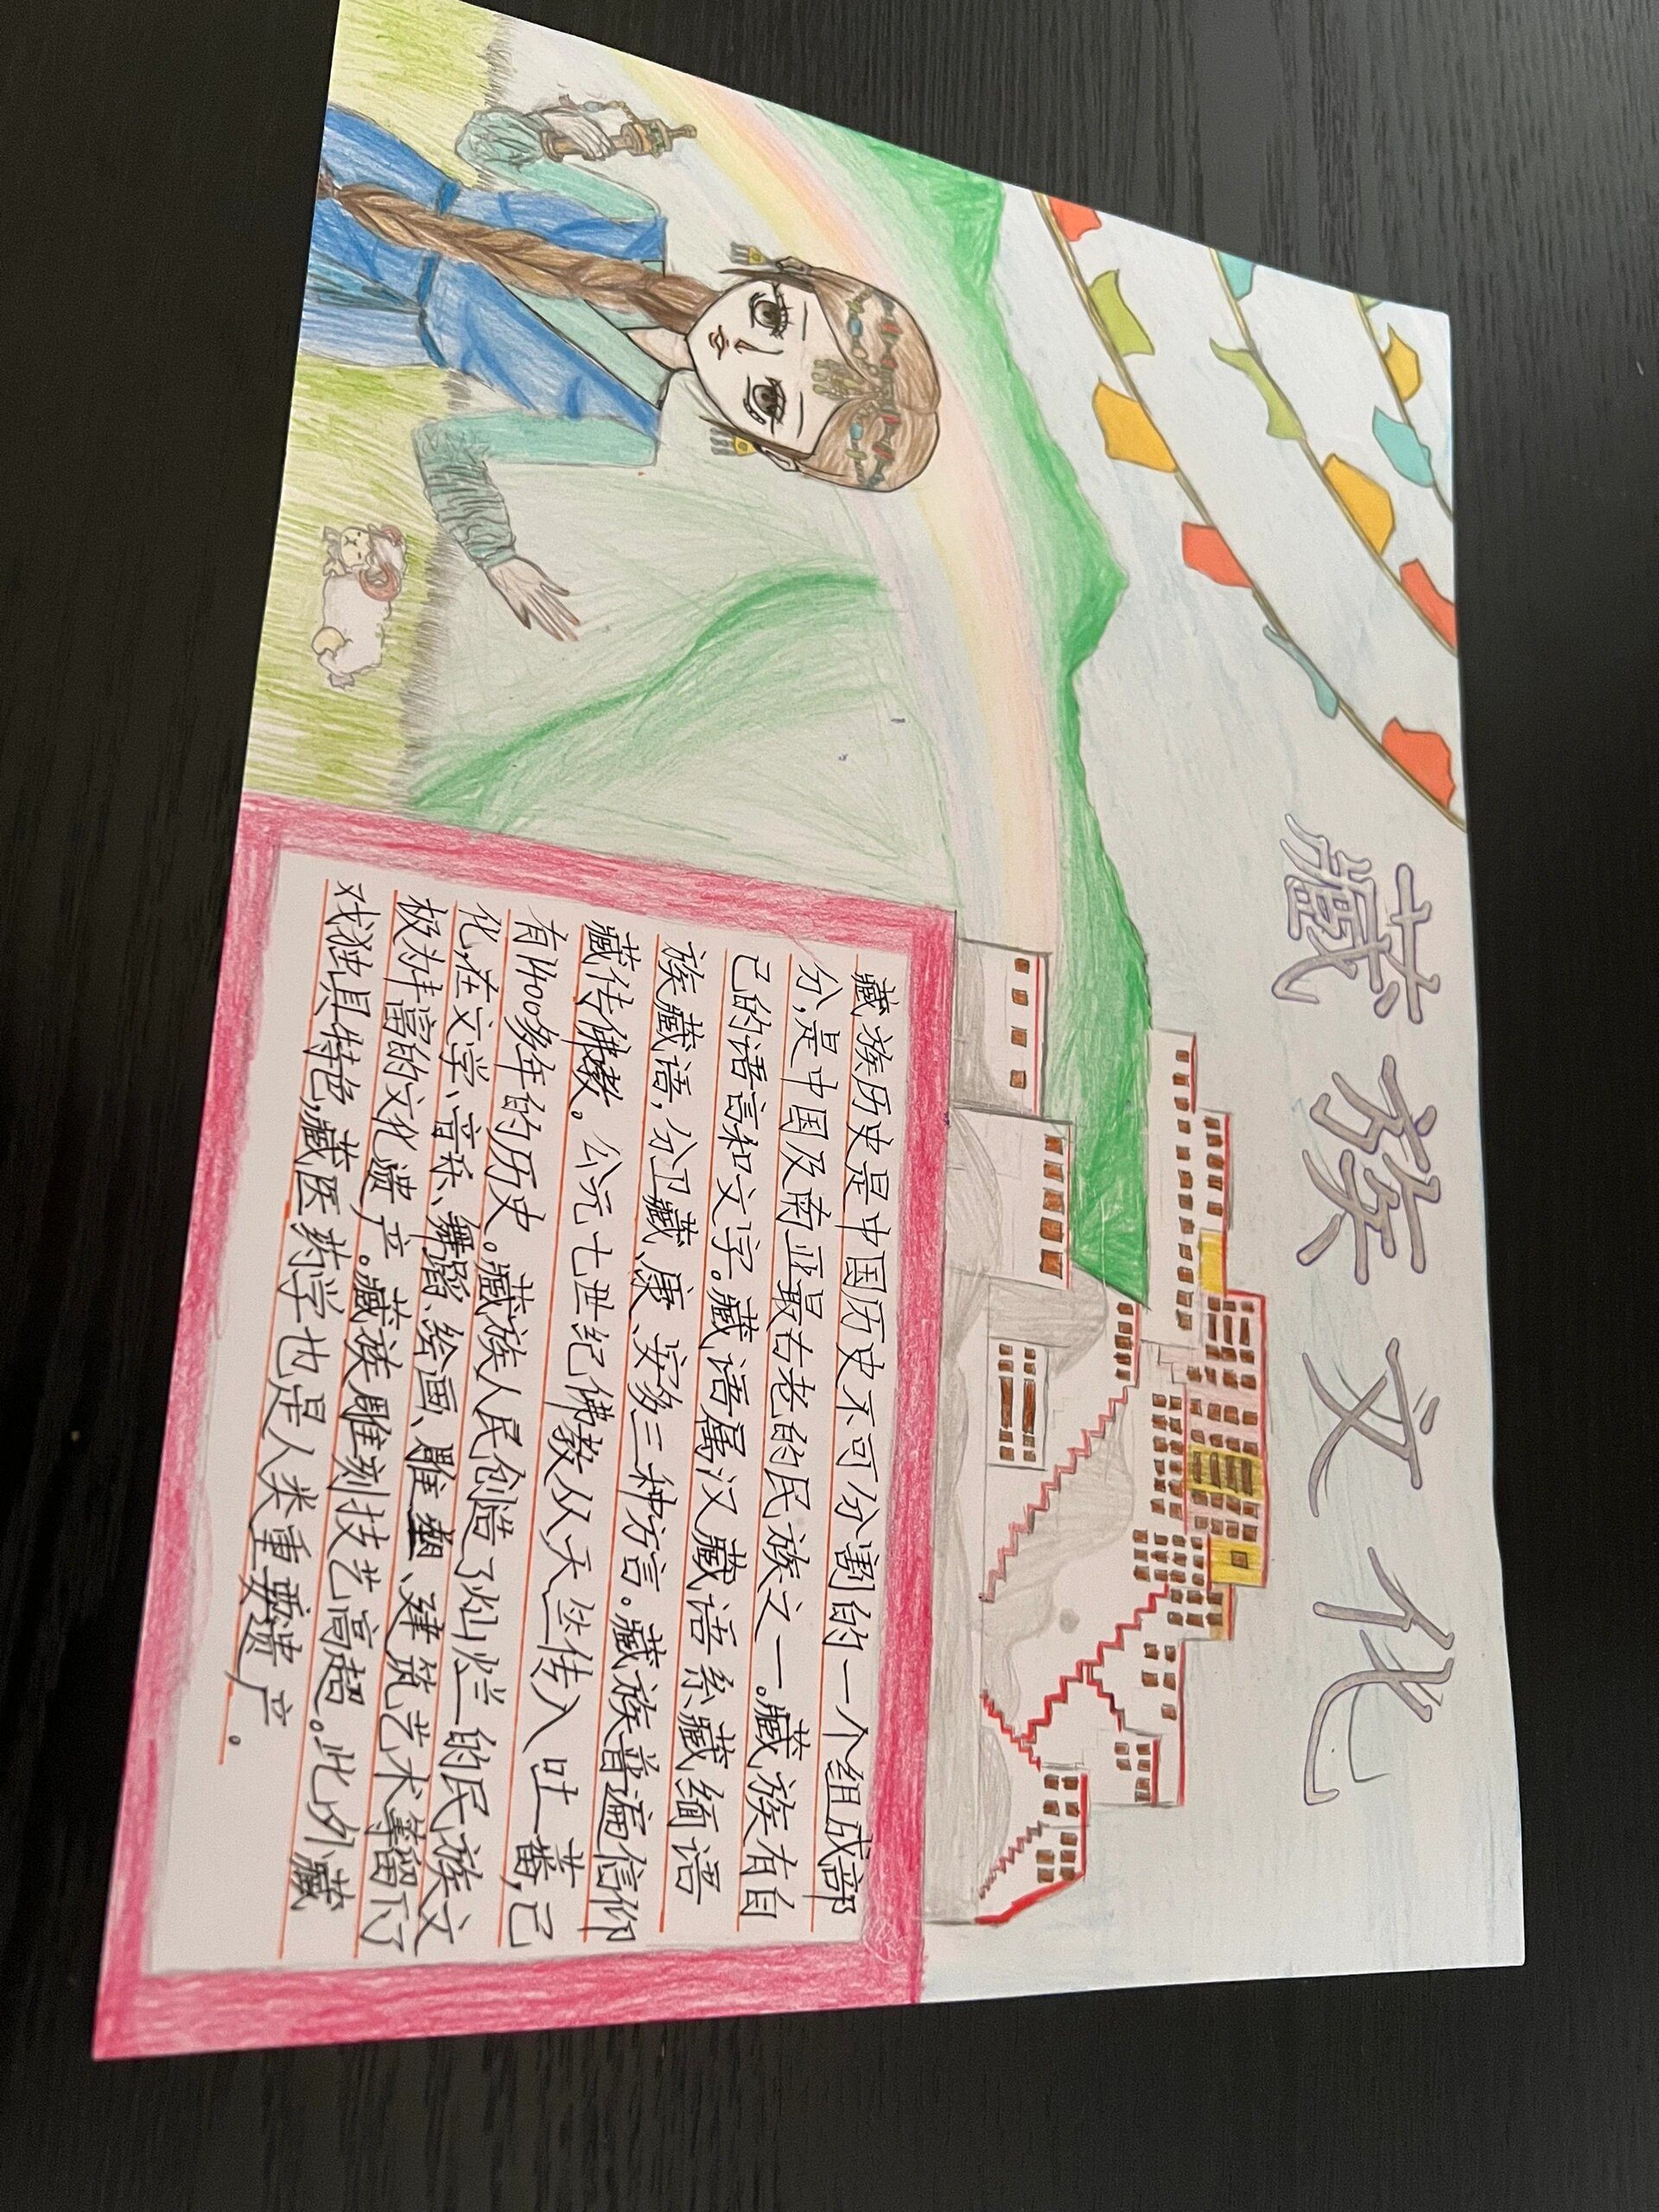 藏族文化
藏族历史是中国历史不可分割的一个组成部
分,是中国及南亚最古老的民族之一。藏族有自
己的语言和文字。藏语属汉藏语系藏缅语
族藏语,分卫藏、康、安多三种方言。藏族普遍信仰
藏传佛教。公元七世纪佛教从天竺传入吐蕃,已
有1400多年的历史。藏族人民创造了灿烂的民族文
化,在文学、音乐、舞蹈、绘画、雕塑、建筑艺术等留下了
极为丰富的文化遗产。藏族雕刻技艺高超。此外藏
戏独具特色,藏医药学也是人类重要遗产。